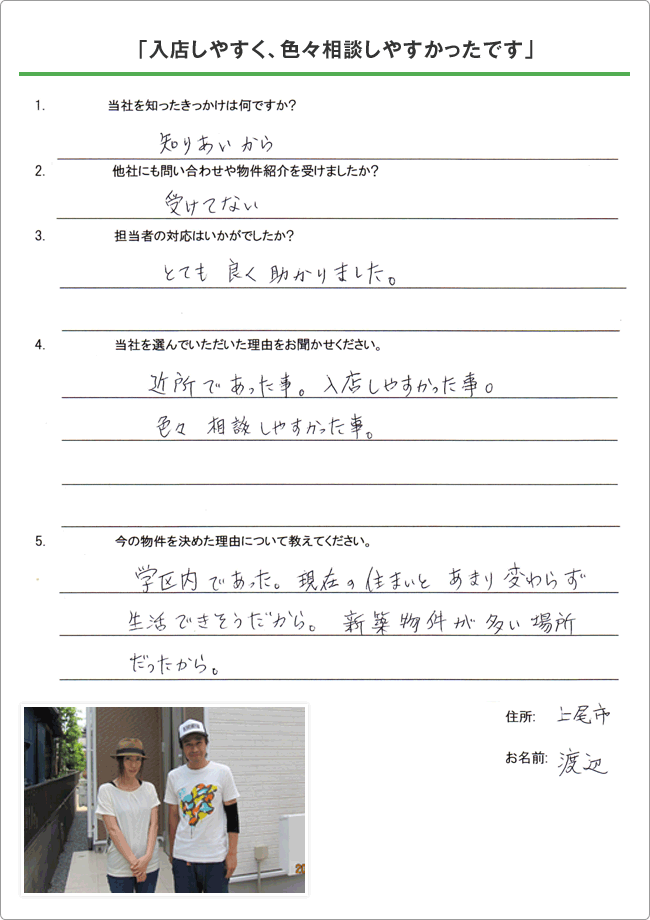 「入店しやすく、色々相談しやすかったです」
1. 当社を知ったきっかけは何ですか?
知りあいから
2. 他社にも問い合わせや物件紹介を受けましたか?
受けてない
3. 担当者の対応はいかがでしたか?
とても 良く 助かりました。
4. 当社を選んでいただいた理由をお聞かせください。
近所であった事。入店しやすかった事。
色々 相談しやすかった事。
5. 今の物件を決めた理由について教えてください。
学区内であった。現在の住まいと あまり変わらず
生活できそうだから。 新築物件が多い場所
だったから。
住所: 上尾市
お名前: 渡辺